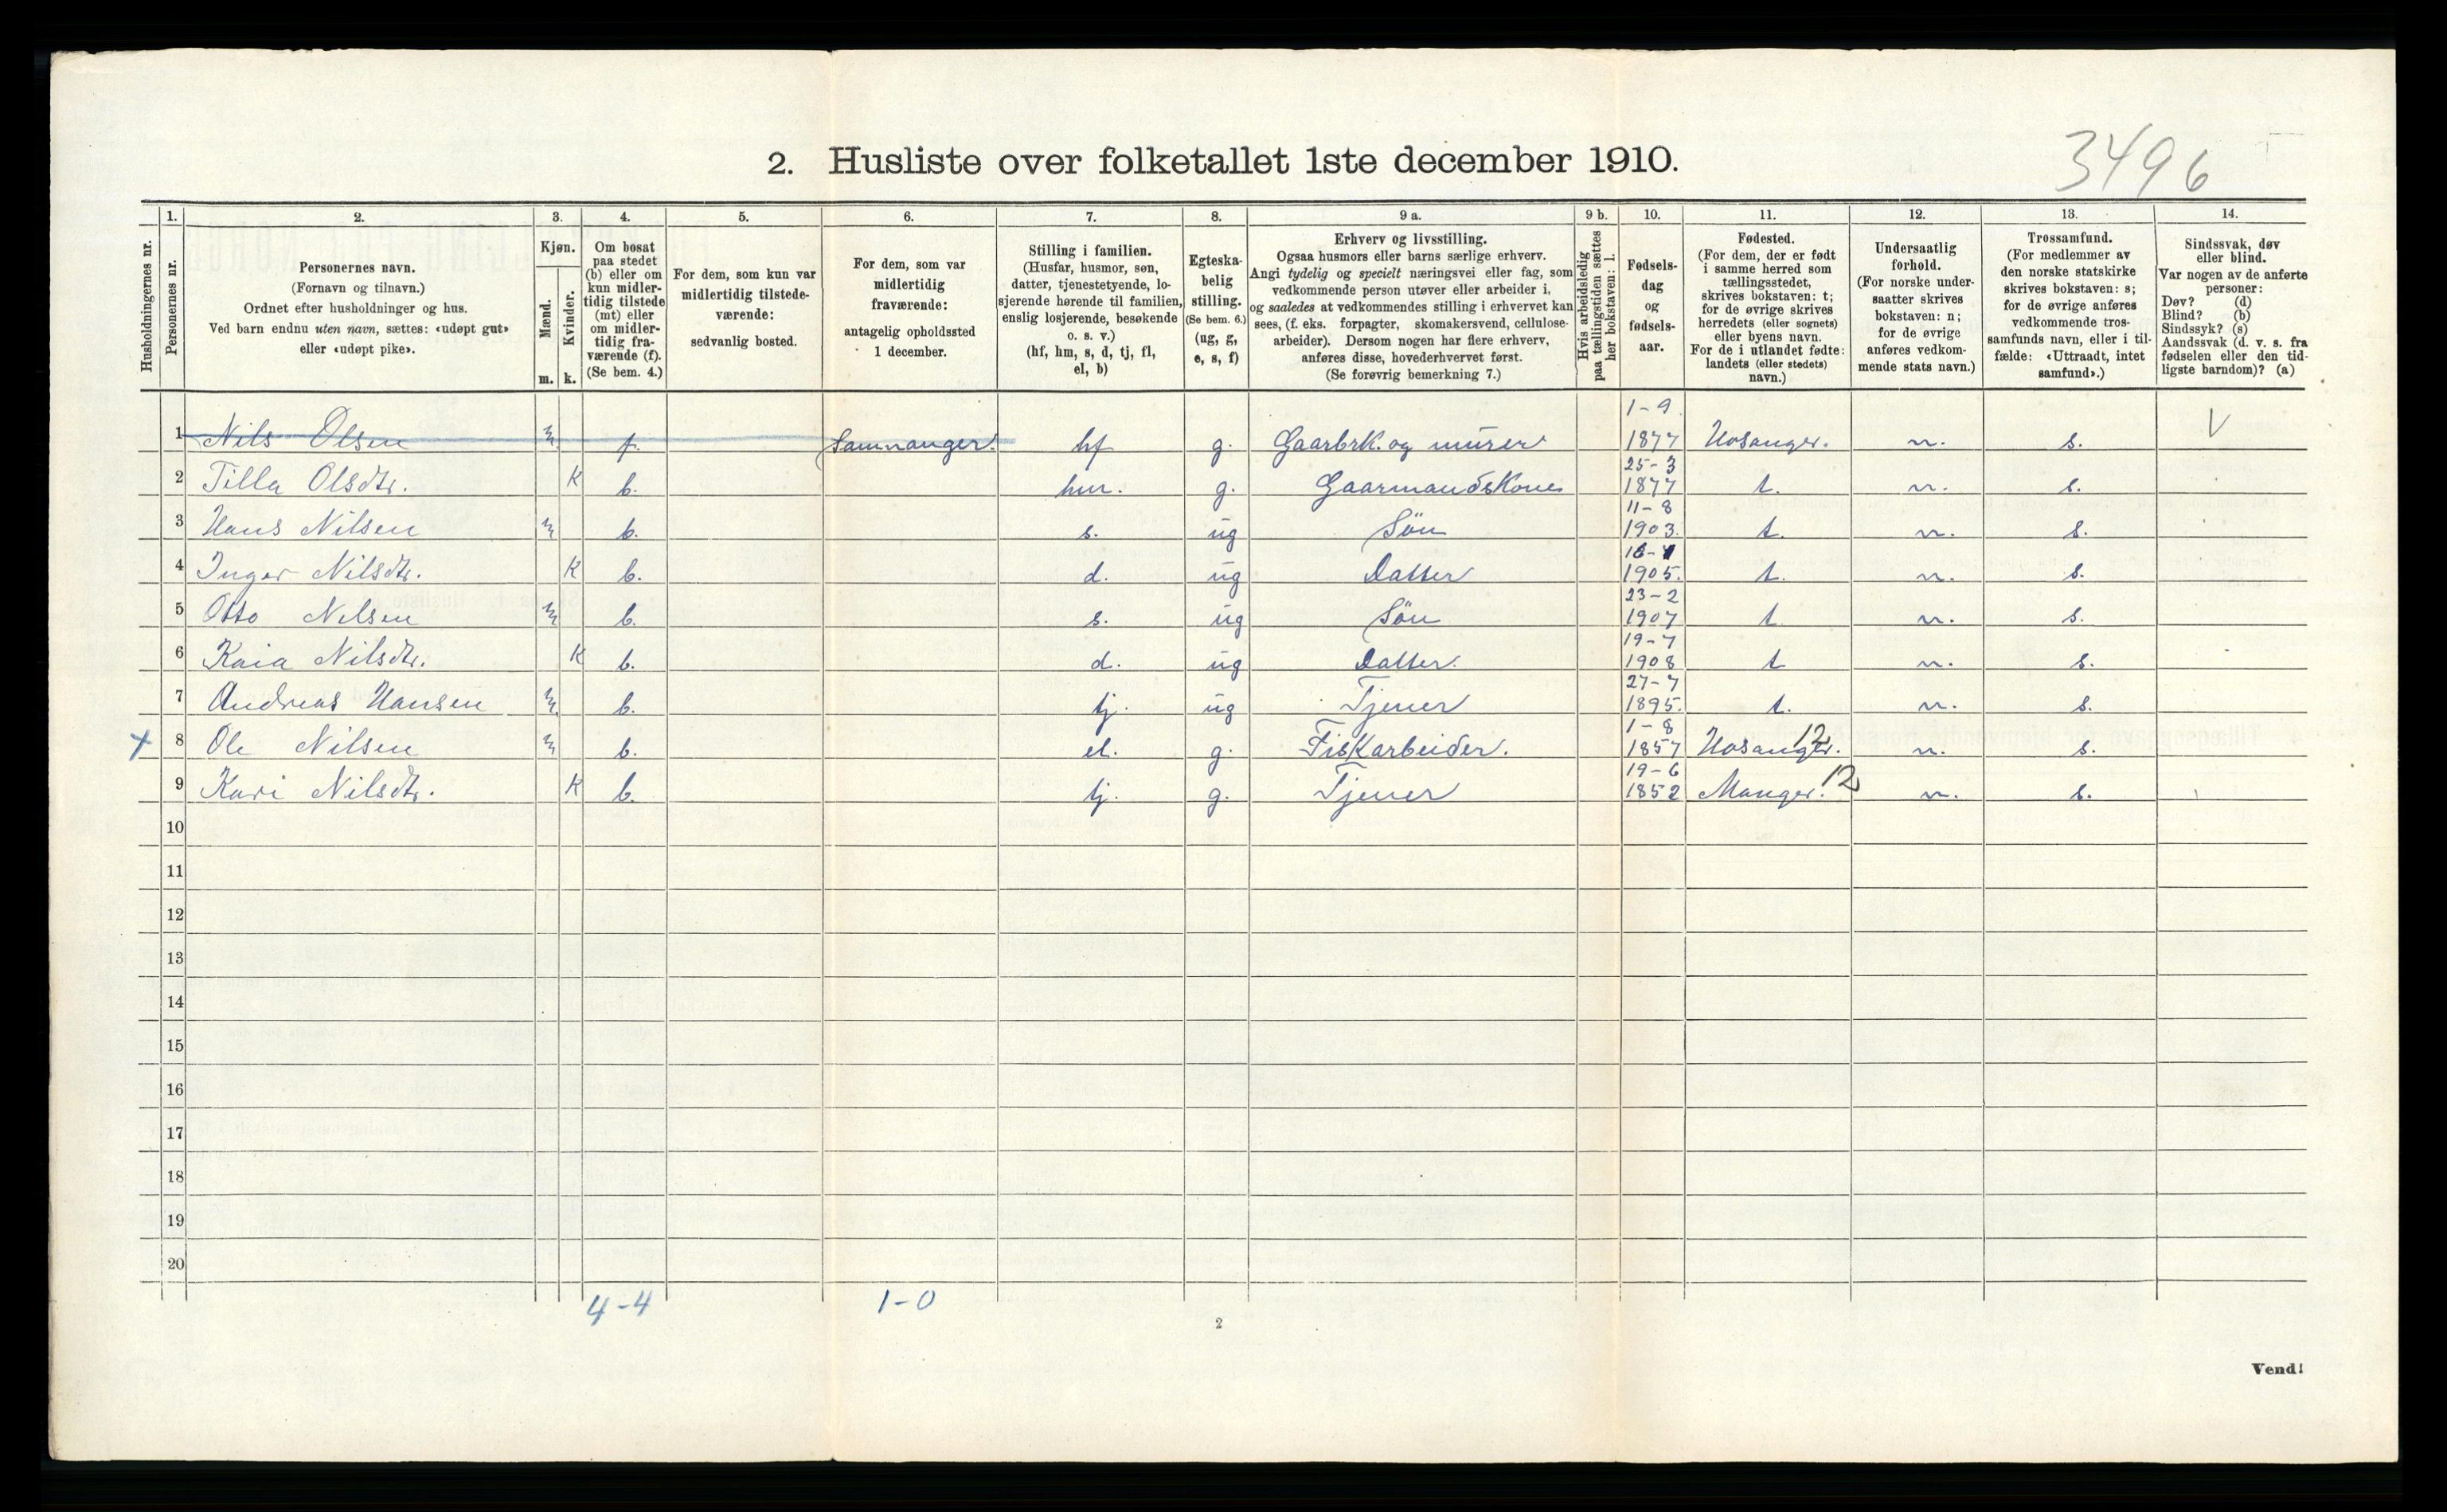 3496
2. Husliste over folketallet 1ste december 1910.
Husholdningernes nr.
1. Personernes nr.
2. Personernes navn. (Fornavn og tilnavn.) Ordnet efter husholdninger og hus. Ved barn endnu uten navn, sættes: «udøpt gut» eller «udøpt pike».
3. Kjøn. Mænd. m. Kvinder. k.
4. Om bosat paa stedet (b) eller om kun midlertidig tilstede (mt) eller om midlertidig fraværende (f). (Se bem. 4.)
5. For dem, som kun var midlertidig tilstedeværende: sedvanlig bosted.
6. For dem, som var midlertidig fraværende: antagelig opholdssted 1 december.
7. Stilling i familien. (Husfar, husmor, søn, datter, tjenestetyende, losjerende hørende til familien, enslig losjerende, besøkende o. s. v.) (hf, hm, s, d, tj, fl, el, b)
8. Egteskabelig stilling. (Se bem. 6.) (ug, g, e, s, f)
9 a. Erhverv og livsstilling. Ogsaa husmors eller barns særlige erhverv. Angi tydelig og specielt næringsvei eller fag, som vedkommende person utøver eller arbeider i, og saaledes at vedkommendes stilling i erhvervet kan sees, (f. eks. forpagter, skomakersvend, cellulosearbeider). Dersom nogen har flere erhverv, anføres disse, hovederhvervet først. (Se forøvrig bemerkning 7.)
9 b. Hvis arbeidsledig paa tællingstiden sættes her bokstaven: l.
10. Fødselsdag og fødselsaar.
11. Fødested. (For dem, der er født i samme herred som tællingsstedet, skrives bokstaven: t; for de øvrige skrives herredets (eller sognets) eller byens navn. For de i utlandet fødte: landets (eller stedets) navn.)
12. Undersaatlig forhold. (For norske undersaatter skrives bokstaven: n; for de øvrige anføres vedkommende stats navn.)
13. Trossamfund. (For medlemmer av den norske statskirke skrives bokstaven: s; for de øvrige anføres vedkommende trossamfunds navn, eller i tilfælde: «Uttraadt, intet samfund».)
14. Sindssvak, døv eller blind. Var nogen av de anførte personer: Døv? (d) Blind? (b) Sindssyk? (s) Aandssvak (d. v. s. fra fødselen eller den tidligste barndom)? (a)
1 Nils Olsen m. f. Samnanger. hf g. Gaarbrk. og murer 1-9 1877 Hosanger. n. s. V
2 Tilla Olsdtr. K b. hm. g. Gaarmandskone 25-3 1877 t. n. s.
3 Hans Nilsen m b. s. ug Søn 11-8 1903. t. n. s.
4 Inger Nilsdtr. K b. d. ug Datter 1905. t. n. s.
5 Otto Nilsen m b. s. ug Søn 23-2 1907 t n. s.
6 Kaia Nilsdtr. K b. d. ug Datter. 19-7 1908 t n. s.
7 Andreas Hansen m. b. tj. ug Tjener 27-7 1895. t. n. s.
+ 8 Ole Nilsen m b. el. g. Fiskarbeider. 1-8 1857 Hosanger. 12 n. s.
9 Kari Nilsdtr. K b. tj. g. Tjener 19-6 1852 Manger. 12 n. s.
10
11
12
13
14
15
16
17
18
19
20
4-4 1-0
2
Vend!